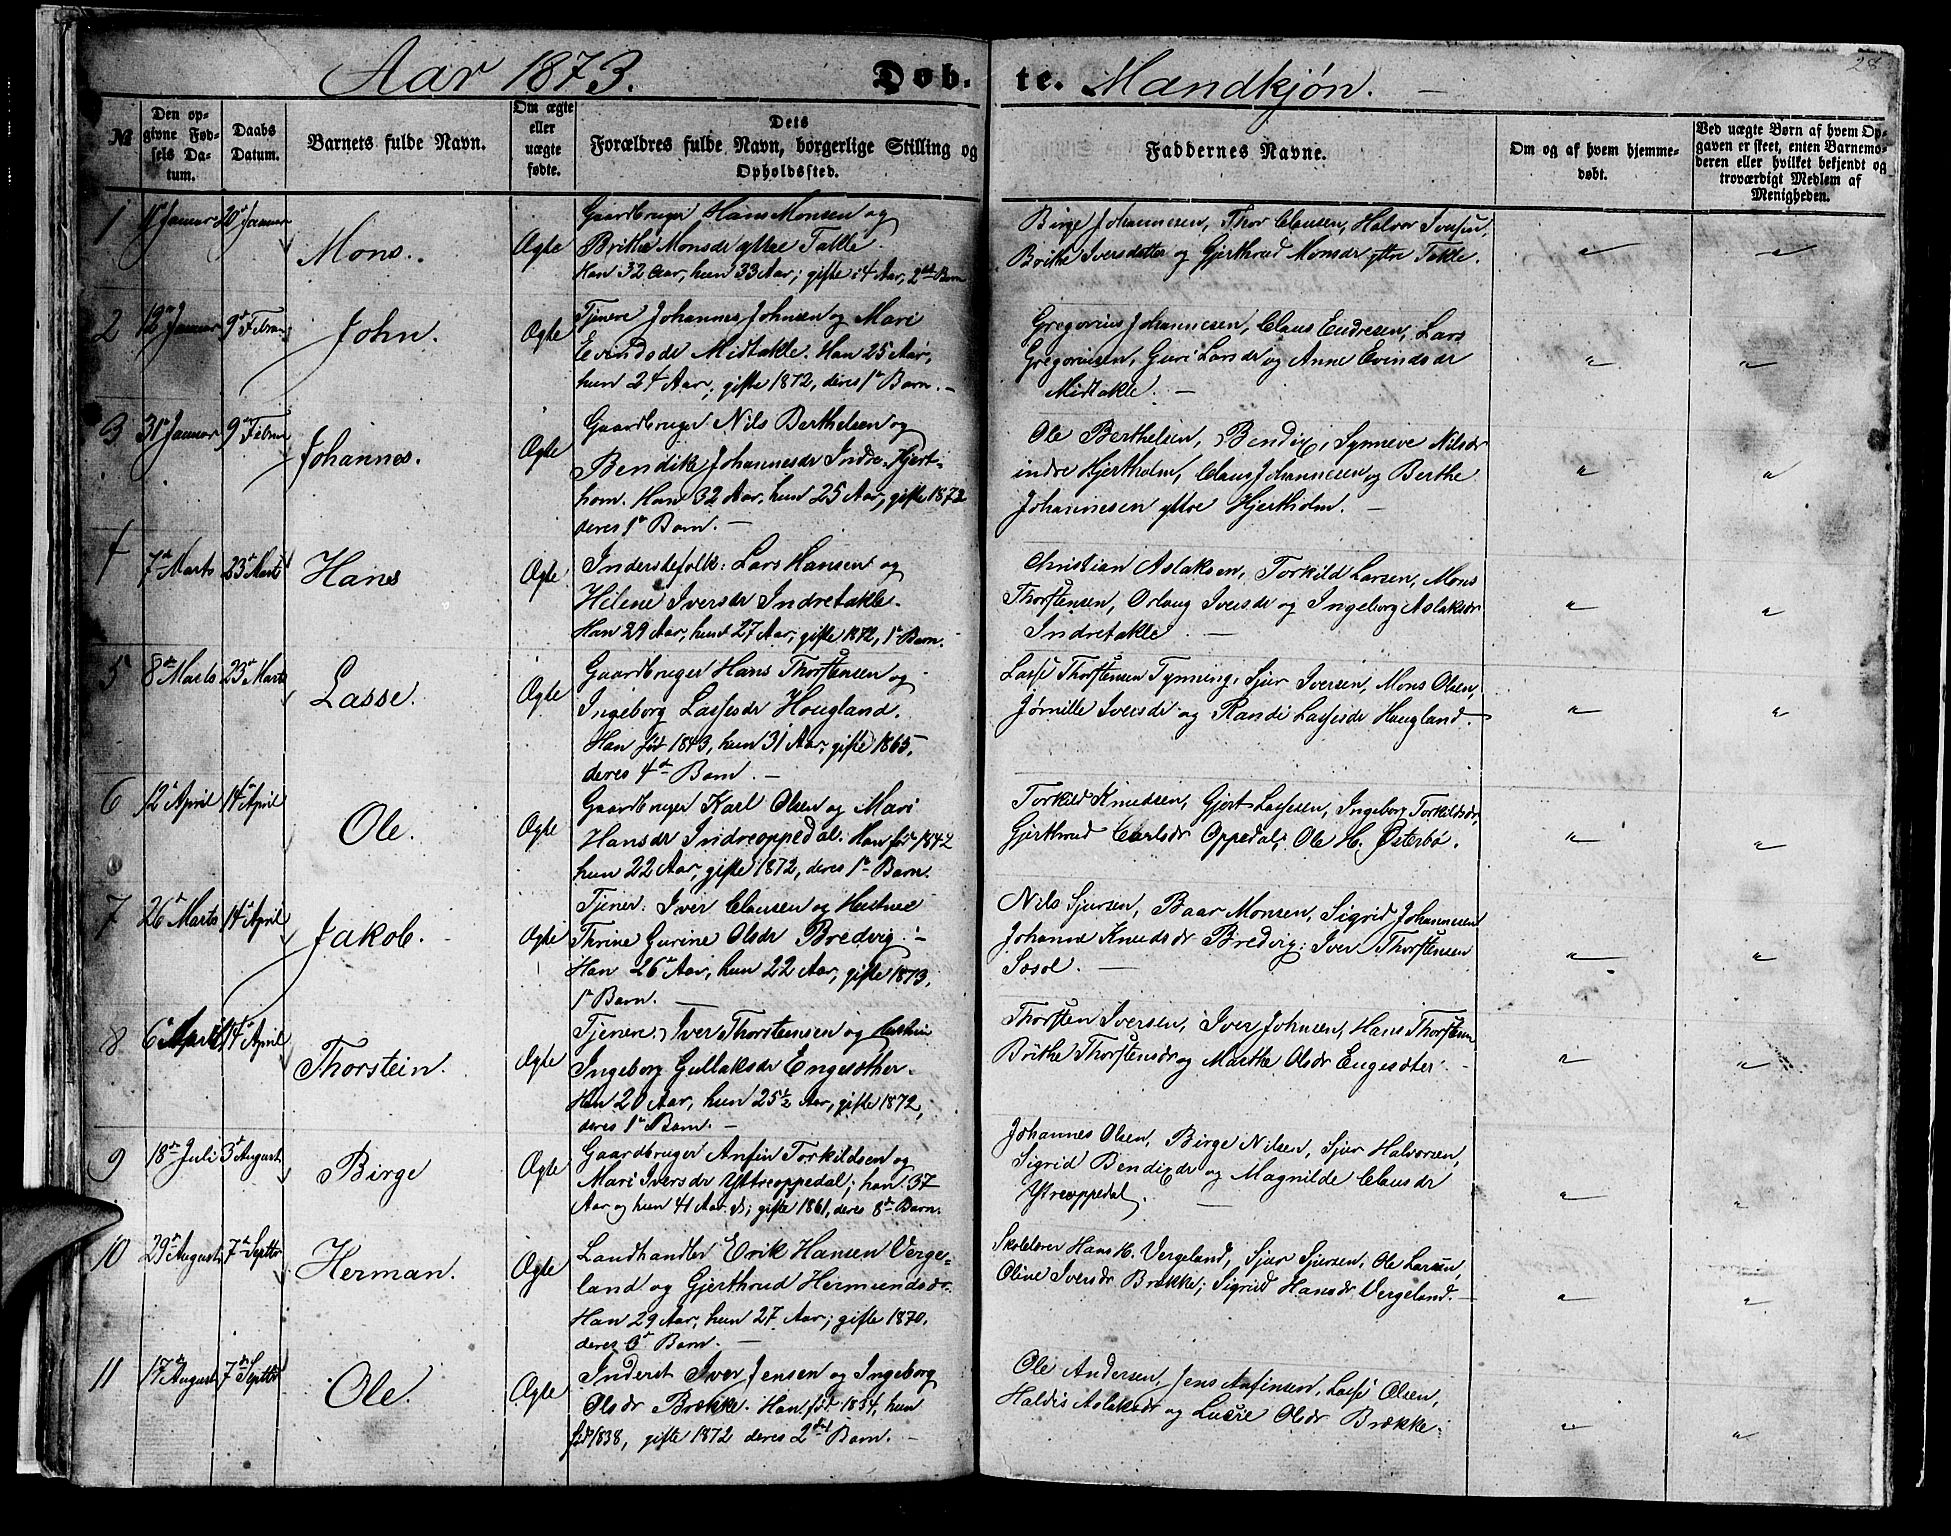 Aar 1873. Døb- te. Mandkjøn. 28
№ Den opgivne Fødsels Datum. Daabs Datum. Barnets fulde Navn. Om ægte eller uægte fødte. Dets Forældres fulde Navn, borgerlige Stilling og Opholdssted. Faddernes Navne. Om og af hvem hjemmedøbt. Ved uægte Børn af hvem Opgaven er skeet, enten Barnemoderen eller hvilket bekjendt og troværdigt Medlem af Menigheden.
1 Januar 20de Januar Mons. Ægte
Gaardbruger Hans Monsen og
Brithe Monsdr yttre Takle.
Han 32 Aar, hun 33 Aar; gifte i 4 Aar, 2det Barn
Birge Johannesen, Thor Clausen, Halvor Iversen,
Brithe Iversdatter og Gjerthrud Monsdr yttre Takle.
2 12te Januar 9de Februar John. Ægte
Tjenere Johannes Johnsen og Mari
Evindsdr Midtakle. Han 25 Aar,
hun 24 Aar; gifte 1872, deres 1te Barn. —
Gregorius Johannesen, Claus Endresen, Lars
Gregoriusen, Guri Larsdr og Anne Evindsdr
Midtakle. —
3 31te Januar 9de Februar Johannes. Ægte
Gaardbruger Nils Berthelsen og
Bendike Johannesdr Indre-Hjert-
hom. Han 32 Aar, hun 25 Aar, gifte 1872
deres 1te Barn. —
Ole Berthelsen, Bendix, Synneve Nilsdr
indre Hjertholm, Claus Johannesen og Berthe
Johannesen yttre Hjertholm. —
4 7de Marts 23de Marts Hans Ægte
Inderstefolk: Lars Hansen og
Helene Iversdr Indretakle.
Han 29 Aar, hun 27 Aar, gifte 1872, 1te Barn.
Christian Aslaksen, Torkild Larsen, Mons
Thorstensen, Orlaug Iversdr og Ingeborg Aslaksdr
Indretakle —
5 8de Marts 23de Marts Lasse. Ægte
Gaardbruger Hans Thorstensen og
Ingeborg Lassesdr Hougland.
Han født 1843, hun 31 Aar, gifte 1865,
deres 4de Barn. —
Lasse Thorstensen Tynning, Sjur Iversen, Mons Olsen,
Jørnille Iversdr og Randi Lassesdr Haugland. —
6 12te April 14de April Ole. Ægte
Gaardbruger Karl Olsen og Mari
Hansdr Indreoppedal. Han fød 1842
hun 22 Aar, gifte 1872, deres 1te Barn.
Torkild Knudsen, Gjert Lassesen, Ingeborg Torkildsdr,
Gjerthrud Carlsdr Oppedal, Ole H. Østerbø.
7 26de Marts 14de April Jakob. Ægte
Tjener: Iver Clausen og Hustrue
Thrine Gurine Olsdr Bredvig. —
Han 26 Aar, hun 22 Aar, gifte 1873,
1te Barn. —
Nils Sjursen, Baar Monsen, Sigrid Johannesen
Johanne Knudsdr Bredvig; Iver Thorstensen
—
8 6te April 14de April Thorstein. Ægte
Tjenere Iver Thorstensen og Hustrue
Ingeborg Gullaksdr Engesæther.
Han 20 Aar, hun 25½ Aar, gifte 1872,
deres 1te Barn. —
Thorsten Iversen, Iver Johnsen, Hans Thorsten
Brithe Thorstensdr og Marthe Olsdr Engesæter.
9 18de Juli 3de August Birge Ægte
Gaardbruger Anfin Torkildsen og
Mari Iversdr Yttreoppedal; han 37
Aar og hun 41 Aar; gifte 1861, deres 8de Barn.
Johannes Olsen, Birge Nilsen, Sjur Halvorsen,
Sigrid Bendixdr og Magnilde Clausdr
Yttreoppedal. —
10 29de August 7de Septbr Herman. Ægte
Landhandler Erik Hansen Verge-
land og Gjerthrud Hermundsdr.
Han 29 Aar, hun 27 Aar; gifte 1870,
deres 3de Barn. —
Skolelærer Hans H. Vergeland, Sjur Sjursen, Ole Larsen,
Oline Iversdr Brække; Sigrid Hansdr Vergeland. —
11 17de August 7de Septbr Ole. Ægte
Inderst Iver Jensen og Ingeborg
Olsdr Brække. Han fød 1834, hun
fød 1838, gifte 1872 deres 2det Barn. —
Ole Andersen, Jens Anfinsen, Lasse Olsen,
Haldis Aslaksdr og Lucie Olsdr Brække.